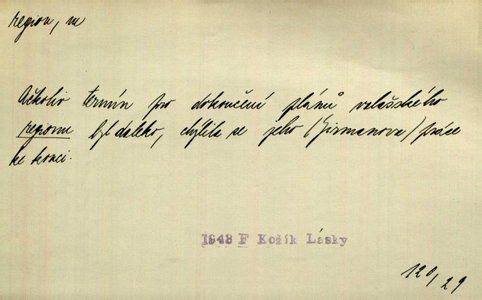 region, m
Ačkoliv termín pro dokončení plánů valašského
regionu byl daleko, chýlila se jeho /Jirmanova/ práce
ke konci.
1948 F Kožík Lásky
120/29